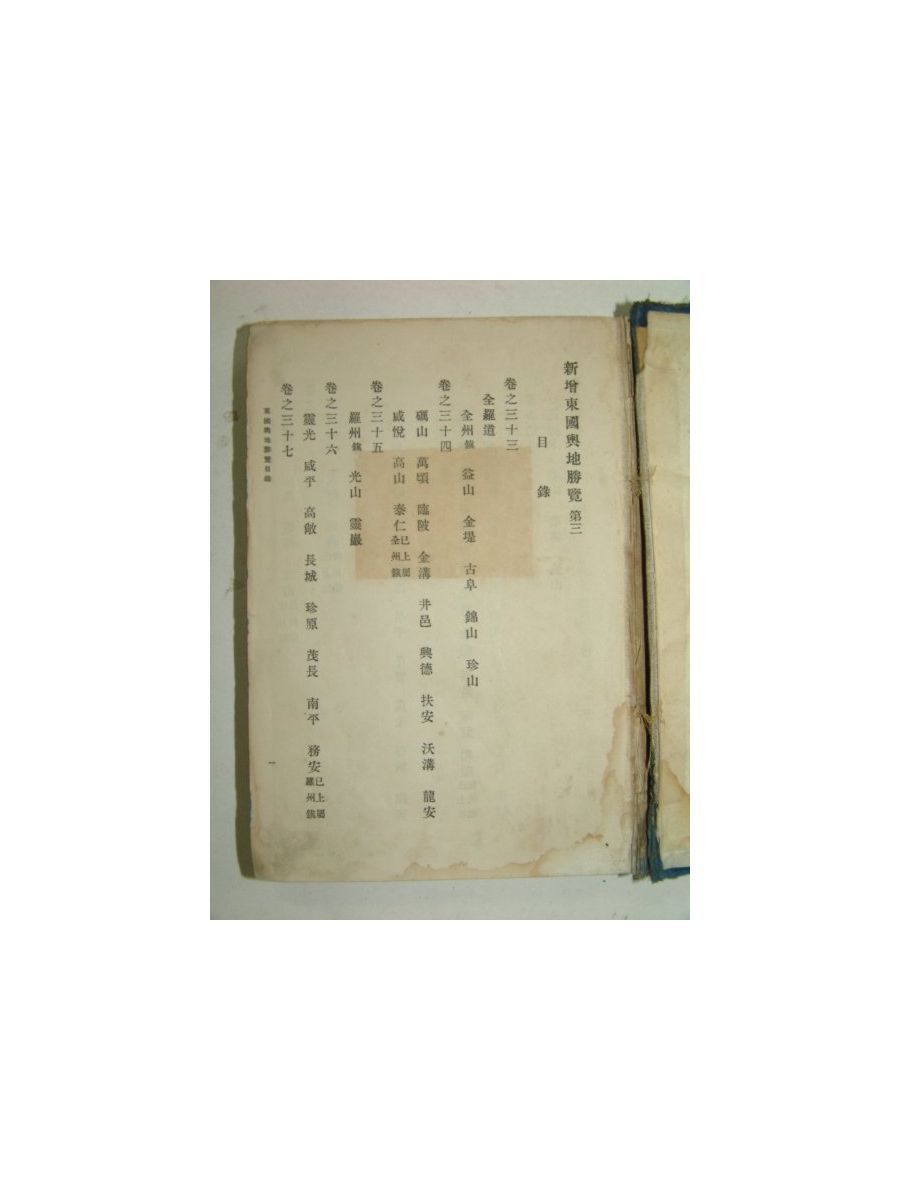 新增東國輿地勝覽 第三
目錄
卷之三十三
全羅道
全州鎭 益山 金堤 古阜 錦山 珍山
卷之三十四
礪山 萬頃 臨陂 金溝 井邑 興德 扶安 沃溝 龍安
咸悅 高山 泰仁 已上屬全州鎭
卷之三十五
羅州鎭 光山 靈巖
卷之三十六
靈光 咸平 高敞 長城 珍原 茂長 南平 務安 已上屬羅州鎭
卷之三十七
東國輿地勝覽目錄
一